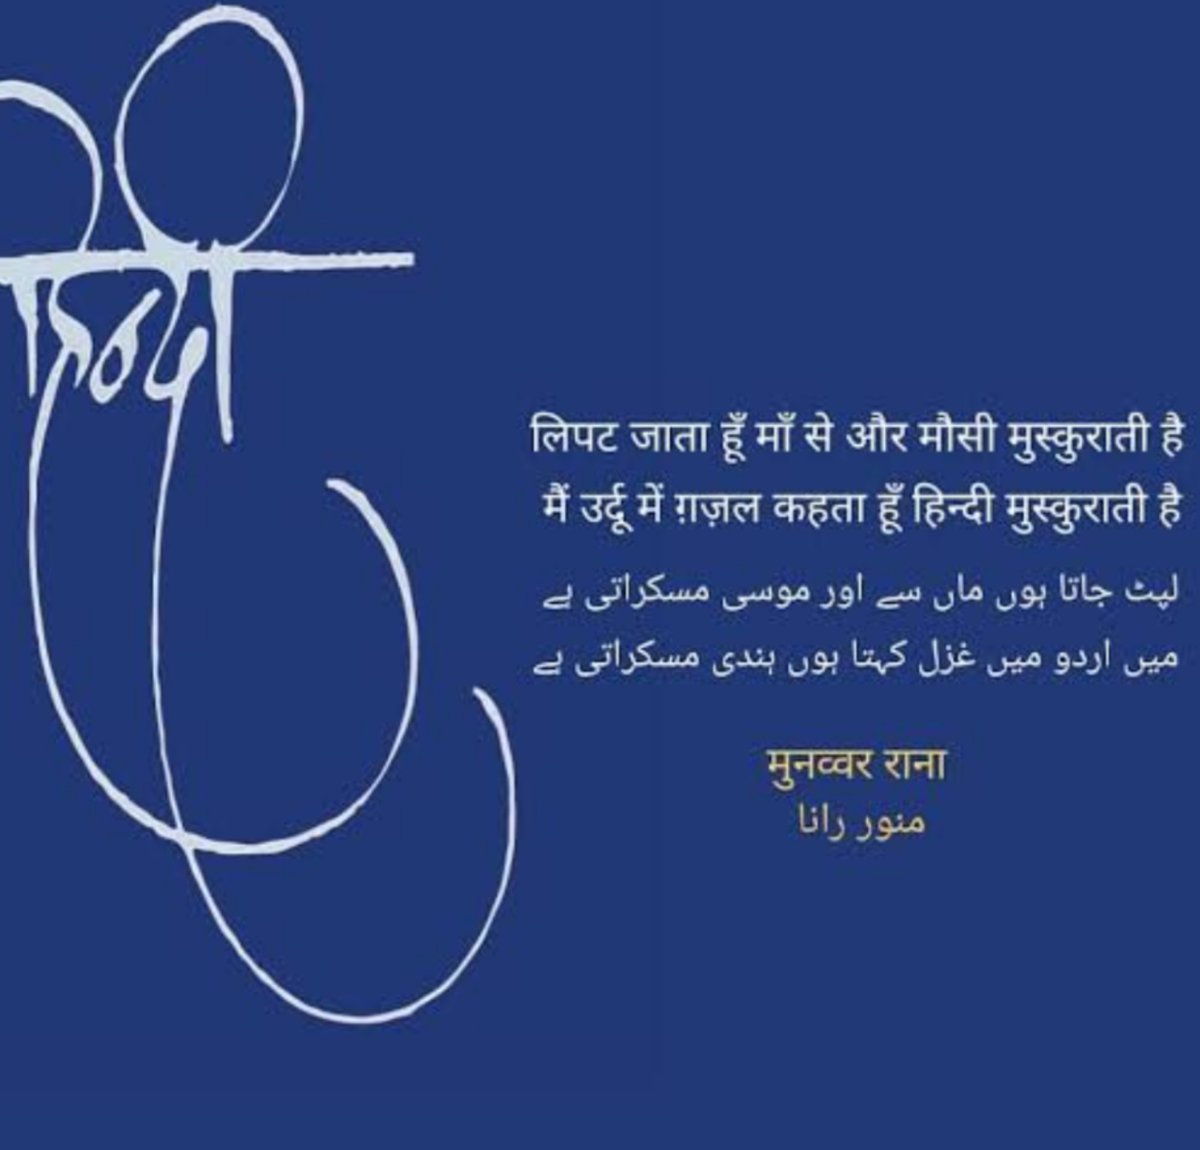 हिन्दी
लिपट जाता हूँ माँ से और मौसी मुस्कुराती है
मैं उर्दू में ग़ज़ल कहता हूँ हिन्दी मुस्कुराती है
لپٹ جاتا ہوں ماں سے اور موسی مسکراتی ہے
میں اردو میں غزل کہتا ہوں ہندی مسکراتی ہے
मुनव्वर राना
منور رانا